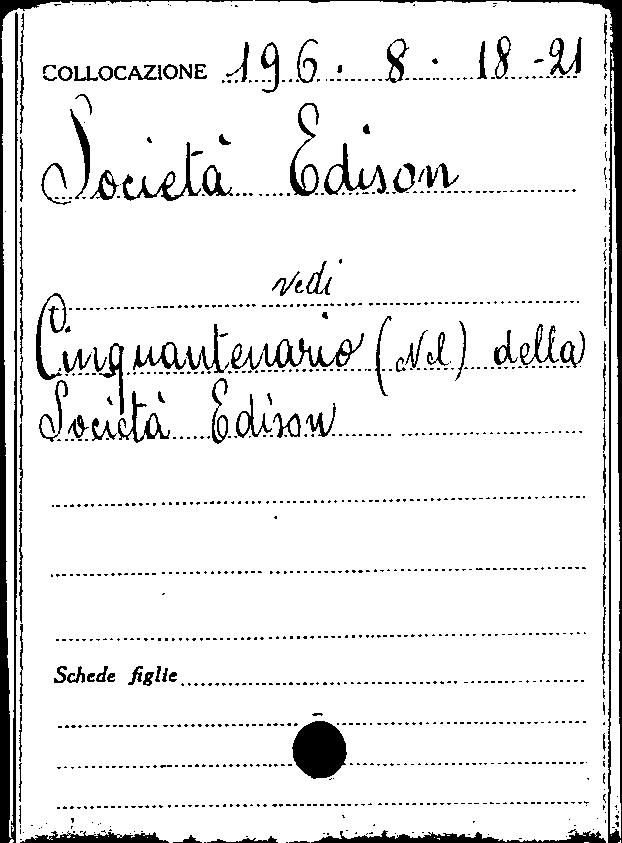 COLLOCAZIONE 196. 8. 18-21
Società Edison
vedi
Cinquantenario (Nel) della
Società Edison
Schede figlie